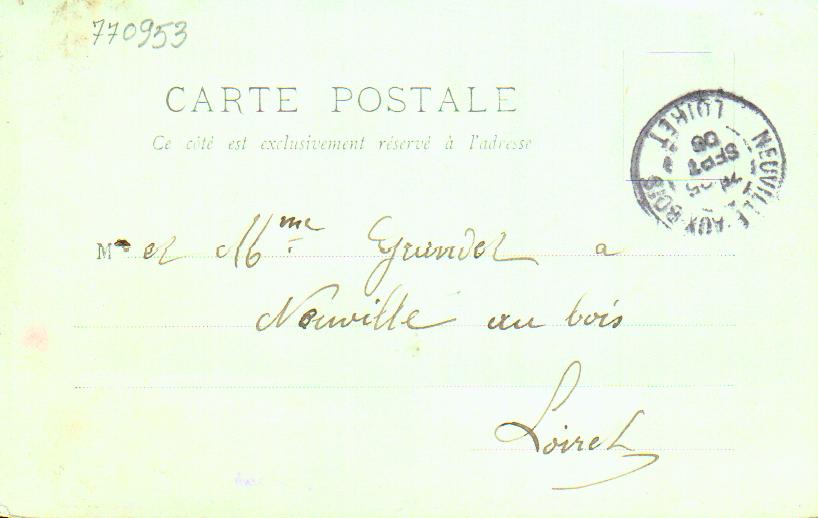 770953
CARTE POSTALE
Ce côté est exclusivement réservé à l'adresse
NEUVILLE-AUX-BOIS
LOIRET
25
SEPT
06
M et Mme Grandet a
Neuville au bois
Loiret